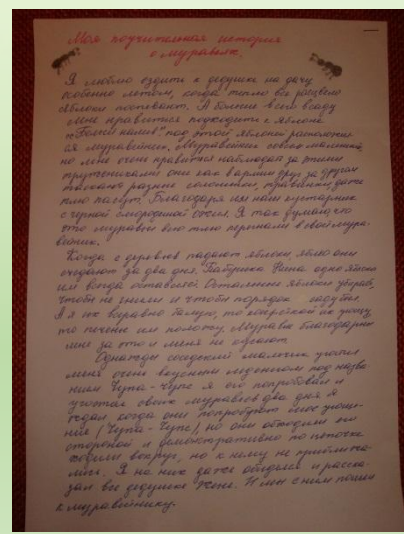 Моя поучительная история
о муравьях.
Я люблю ездить к дедушке на дачу
особенно летом, когда тепло все расцвело
яблоки поспевают. А больше всего в саду
мне нравиться подходить к яблоне
"Белый налив" под этой яблоней расположил
ся муравейник. Муравейник совсем маленький,
но мне очень нравится наблюдать за этими
тружениками они как в армии друг за другом
таскают разные соломинки, травинки даже
тлю пасут. Благодаря им наш кустарник
с черной смородиной ожил. Я так думаю,
что муравьи всю тлю перегнали в свой мура-
вейник.
Когда с деревьев падают яблоки, яблоко они
съедают за два дня. Бабушка Нина одно яблоко
им всегда оставляет. Остальные яблоки убирает,
чтобы не гнили и чтобы порядок был.
А я их балую, то конфеткой их угощу,
то печенье им положу. Муравьи благодарны
мне за это и меня не кусают.
Однажды соседский мальчик угостил
меня очень вкусным леденцом под назва-
нием Чупа-Чупс я его попробовал и
угостил своих муравьёв два дня я
ждал когда они попробуют моё угоще-
ние (Чупа-Чупс), но они отходили
стороной и демонстративно по цепочке
ходили вокруг, но к нему не приближа-
лись. Я на них даже обиделся и расска-
зал все дедушке Жене. И мы с ним пошли
к муравейнику.